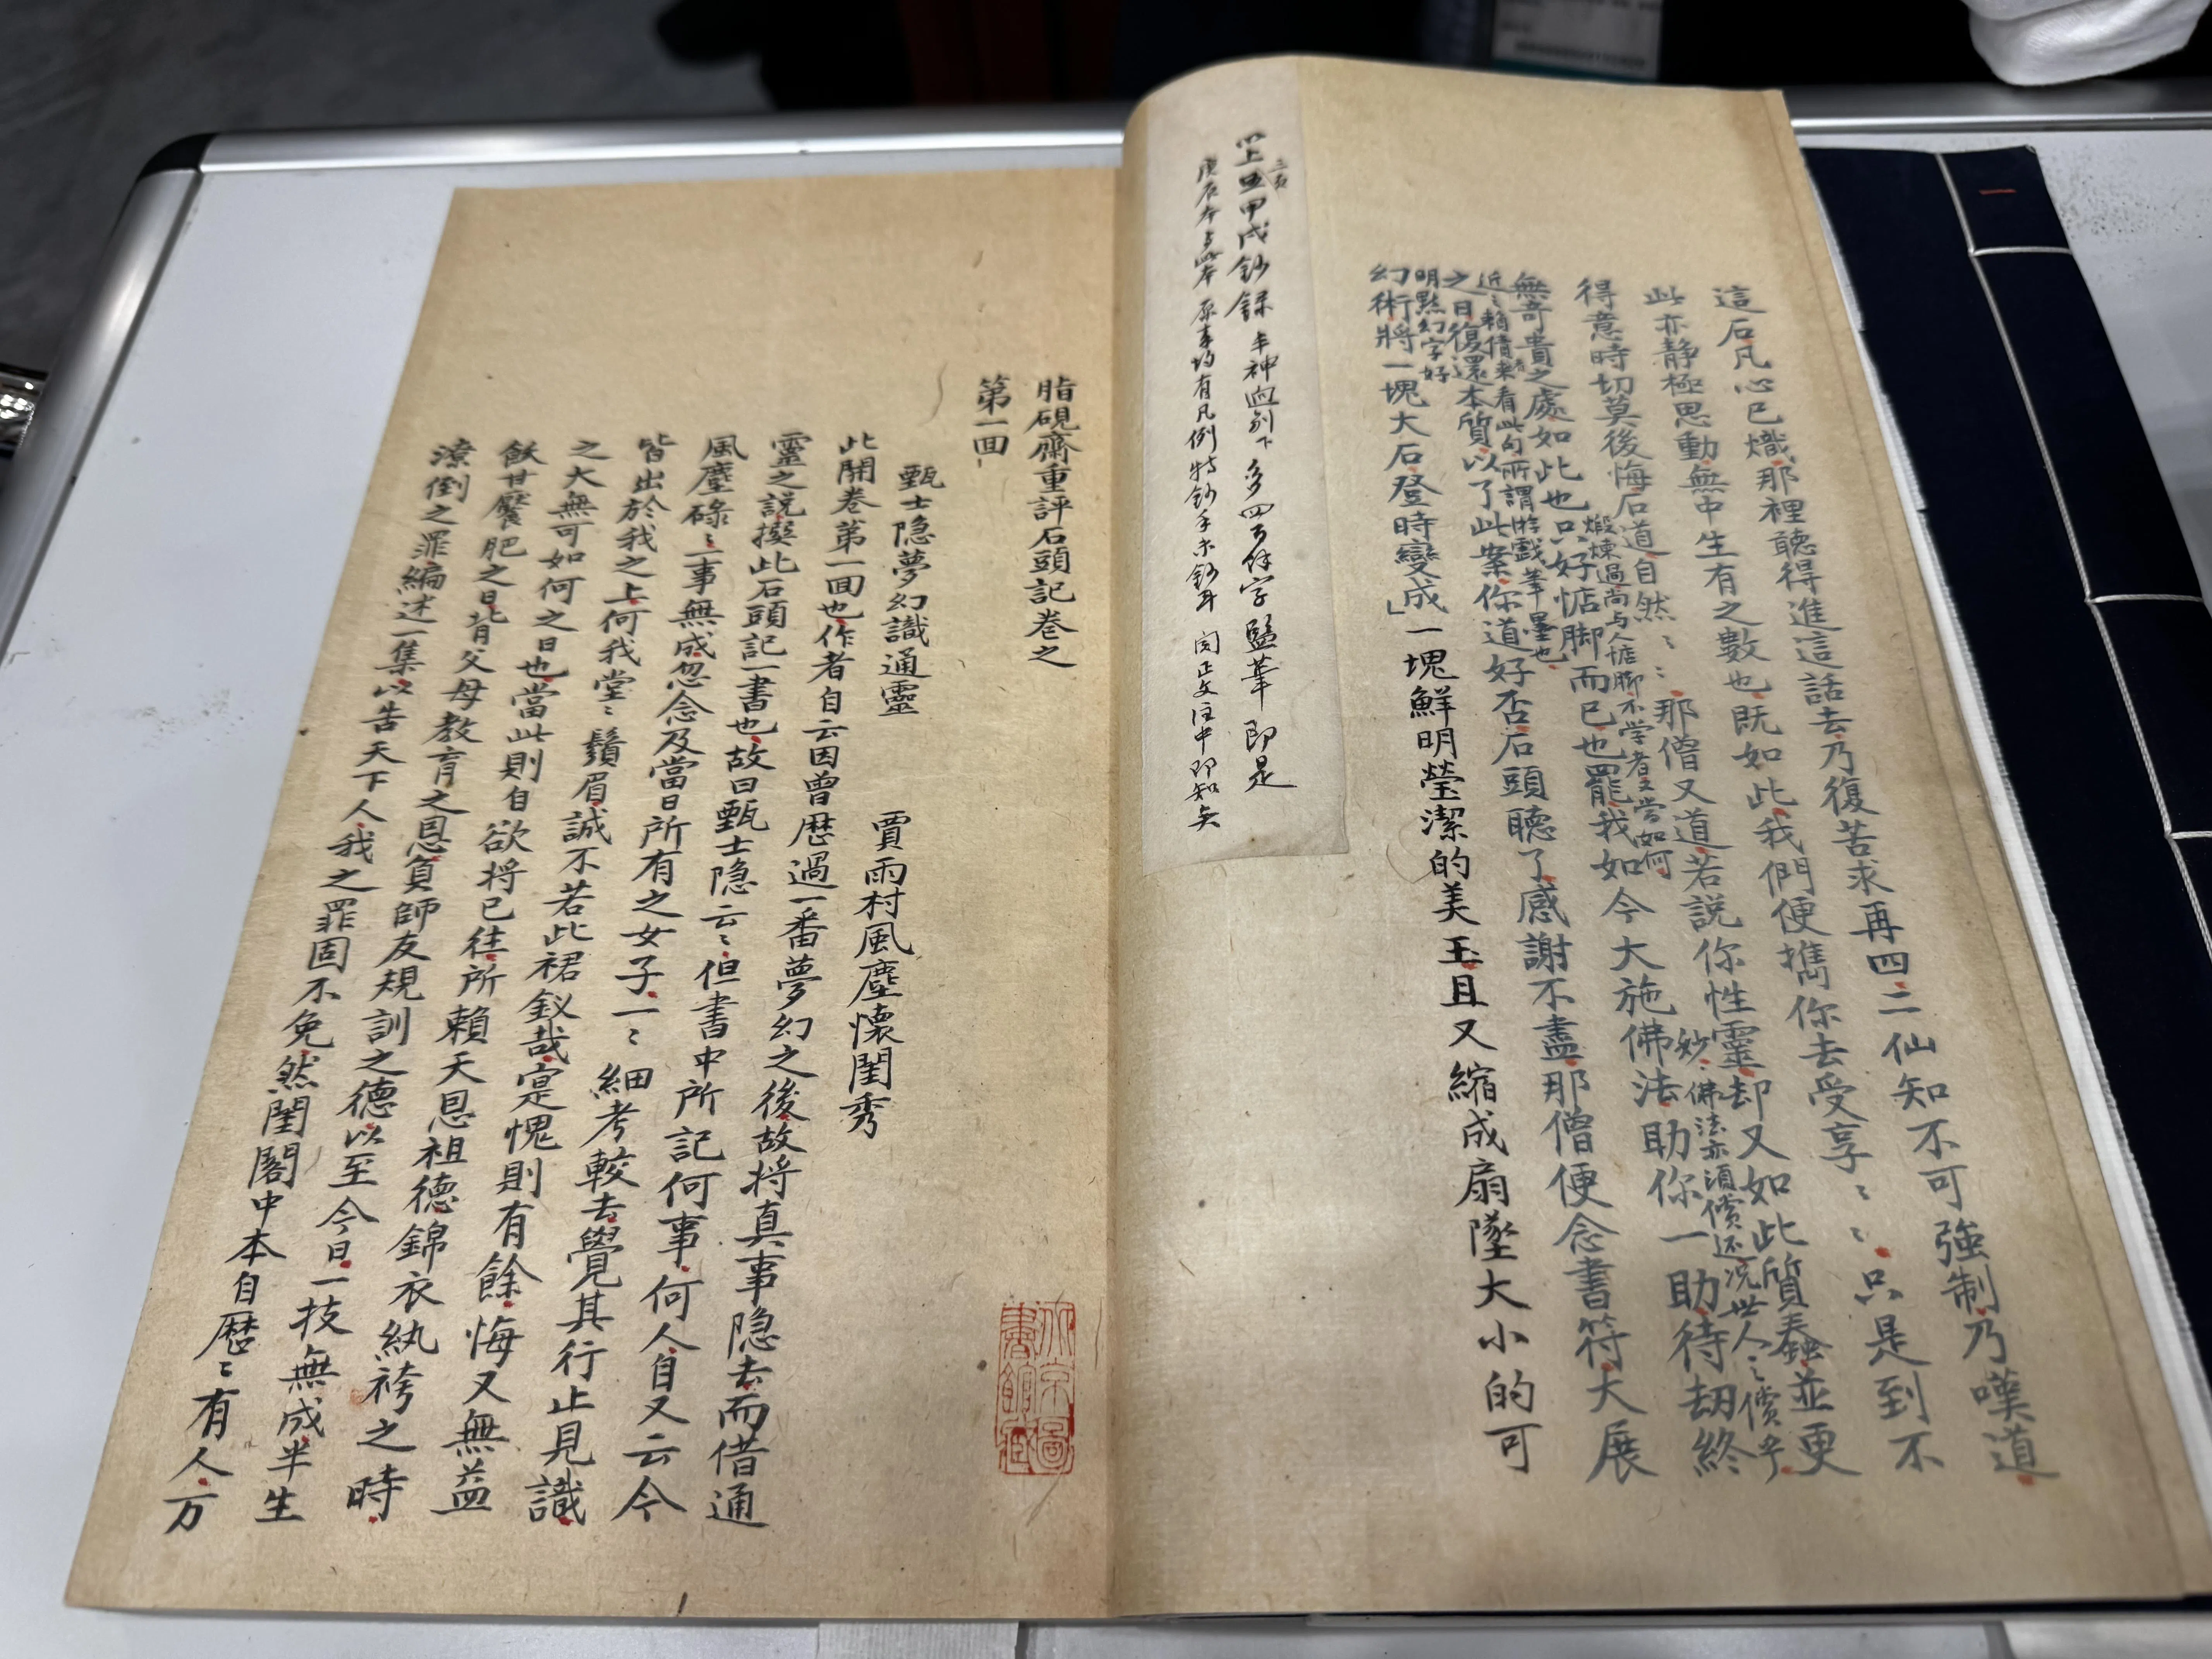 這石凡心已熾那裡聽得進這話去乃復苦求再四二仙知不可強制乃嘆道
此亦靜極思動無中生有之數也既如此我們便攜你去受享〻〻只是到不
得意時切莫後悔石道自然〻〻那僧又道若說你性靈却又如此質蠢並更
煅煉過尚与人惦脚不学者又当如何
妙佛法亦須償还况世人之償乎
無奇貴之處如此也只好惦脚而已也罷我如今大施佛法助你一助待劫終
近〻賴債来看此句所謂游戲筆墨也
之日復還本質以了此案你道好否石頭聽了感謝不盡那僧便念書符大展
明點幻字好
幻術將一塊大石登時變成」一塊鮮明瑩潔的美玉且又縮成扇墜大小的可
三頁
甲戌鈔錄
多四百餘字 即是
庚辰本 原来均有凡例特鈔手未鈔耳 閱正文注中即知矣
脂硯齋重評石頭記卷之
第一回
甄士隐夢幻識通靈 賈雨村風塵懷閨秀
此開卷第一回也作者自云因曾歷過一番夢幻之後故將真事隐去而借通
靈之說撰此石頭記一書也故曰甄士隐云〻但書中所記何事何人自又云今
風塵碌〻一事無成忽念及當日所有之女子一〻細考較去覺其行止見識
皆出於我之上何我堂〻鬚眉誠不若此裙釵哉寔愧則有餘悔又無益
之大無可如何之日也當此則自欲將已往所賴天恩祖德錦衣紈袴之時
飫甘饜肥之日背父母教育之恩負師友規訓之德以至今日一技無成半生
潦倒之罪編述一集以告天下人我之罪固不免然閨閣中本自歷〻有人万
京
圖
書館藏
一